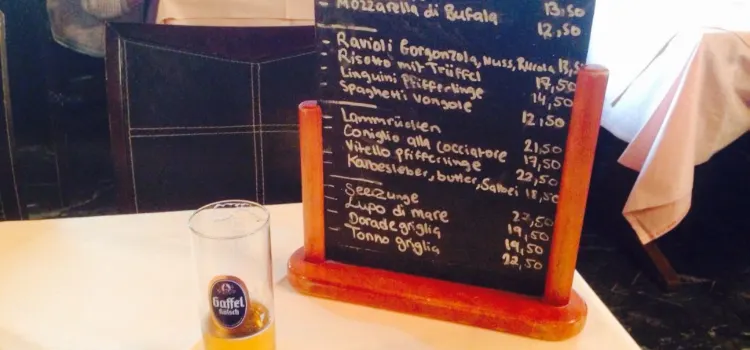 Mozzarella di Bufala 13,50
12,50
Ravioli Gorgonzola, Nuss, Rucola 13,5
Risotto mit Trüffel 17,50
Linguini Pfifferlinge 14,50
Spaghetti Vongole 12,50
Lammrücken 21,50
Coniglio alla Cacciatore 17,50
Vitello Pfifferlinge 22,50
Kalbsleber, butter, Salbei 18,50
Seezunge 23,50
Lupo di mare 19,50
Dorade griglia 19,50
Tonno griglia 22,50
Gaffel
Kölsch